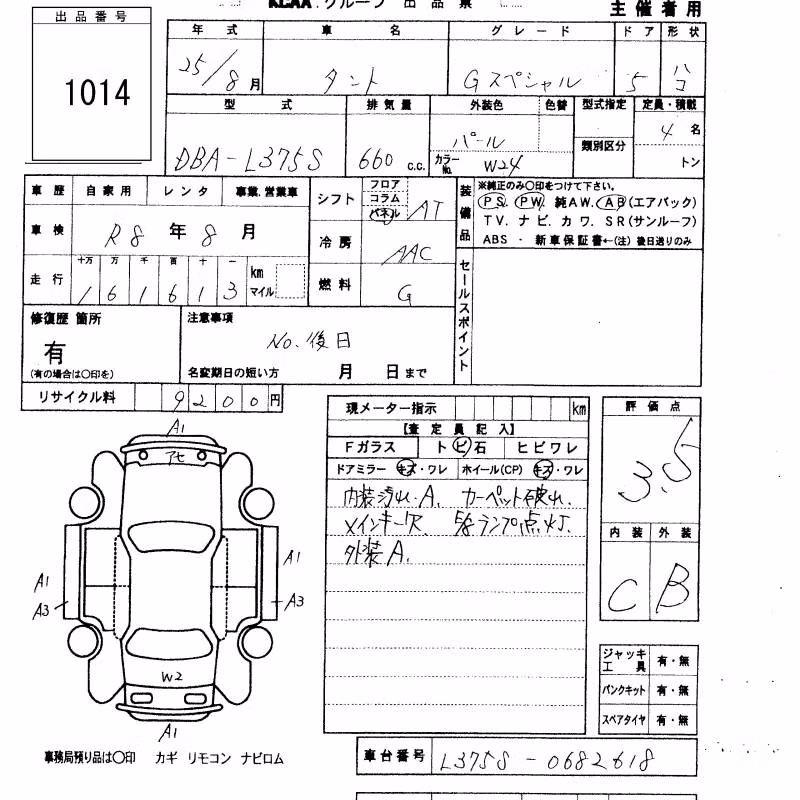 KCAA グループ 出品票
主催者用
出品番号
1014
年式 車名 グレード ドア 形状
25/8月 タント Gスペシャル 5 ハコ
型式 排気量 外装色 色替 型式指定 定員・積載
DBA-L375S 660 c.c. パール カラーNo. W24 類別区分 4名 トン
車歴 自家用 レンタ 事業.営業車
車検 R8年8月
走行 十万 万 千 百 十 一 km マイル
1 6 1 6 1 3
シフト フロア コラム パネル AT
冷房 AAC
燃料 G
装備品
※純正のみ〇印をつけて下さい。
PS. PW. 純AW. AB(エアバック)
TV. ナビ. カワ. SR(サンルーフ)
ABS ・ 新車保証書←(注) 後日送りのみ
セールスポイント
修復歴 箇所
有
(有の場合は〇印を)
注意事項
No.後日
名変期日の短い方 月 日まで
リサイクル料 9200円
現メーター指示 km
【査定員記入】
Fガラス トビ石 ヒビワレ
ドアミラー キズ・ワレ ホイール(CP) キズ・ワレ
内装汚れ.A. カーペット破れ.
メインキー欠. E/gランプ点灯.
外装A.
評価点
3.5
内装 外装
C B
ジャッキ工具 有・無
パンクキット 有・無
スペアタイヤ 有・無
A1
アセ
A1 A1
A3 A3
W2
A1
事務局預り品は〇印 カギ リモコン ナビロム
車台番号 L375S-0682618